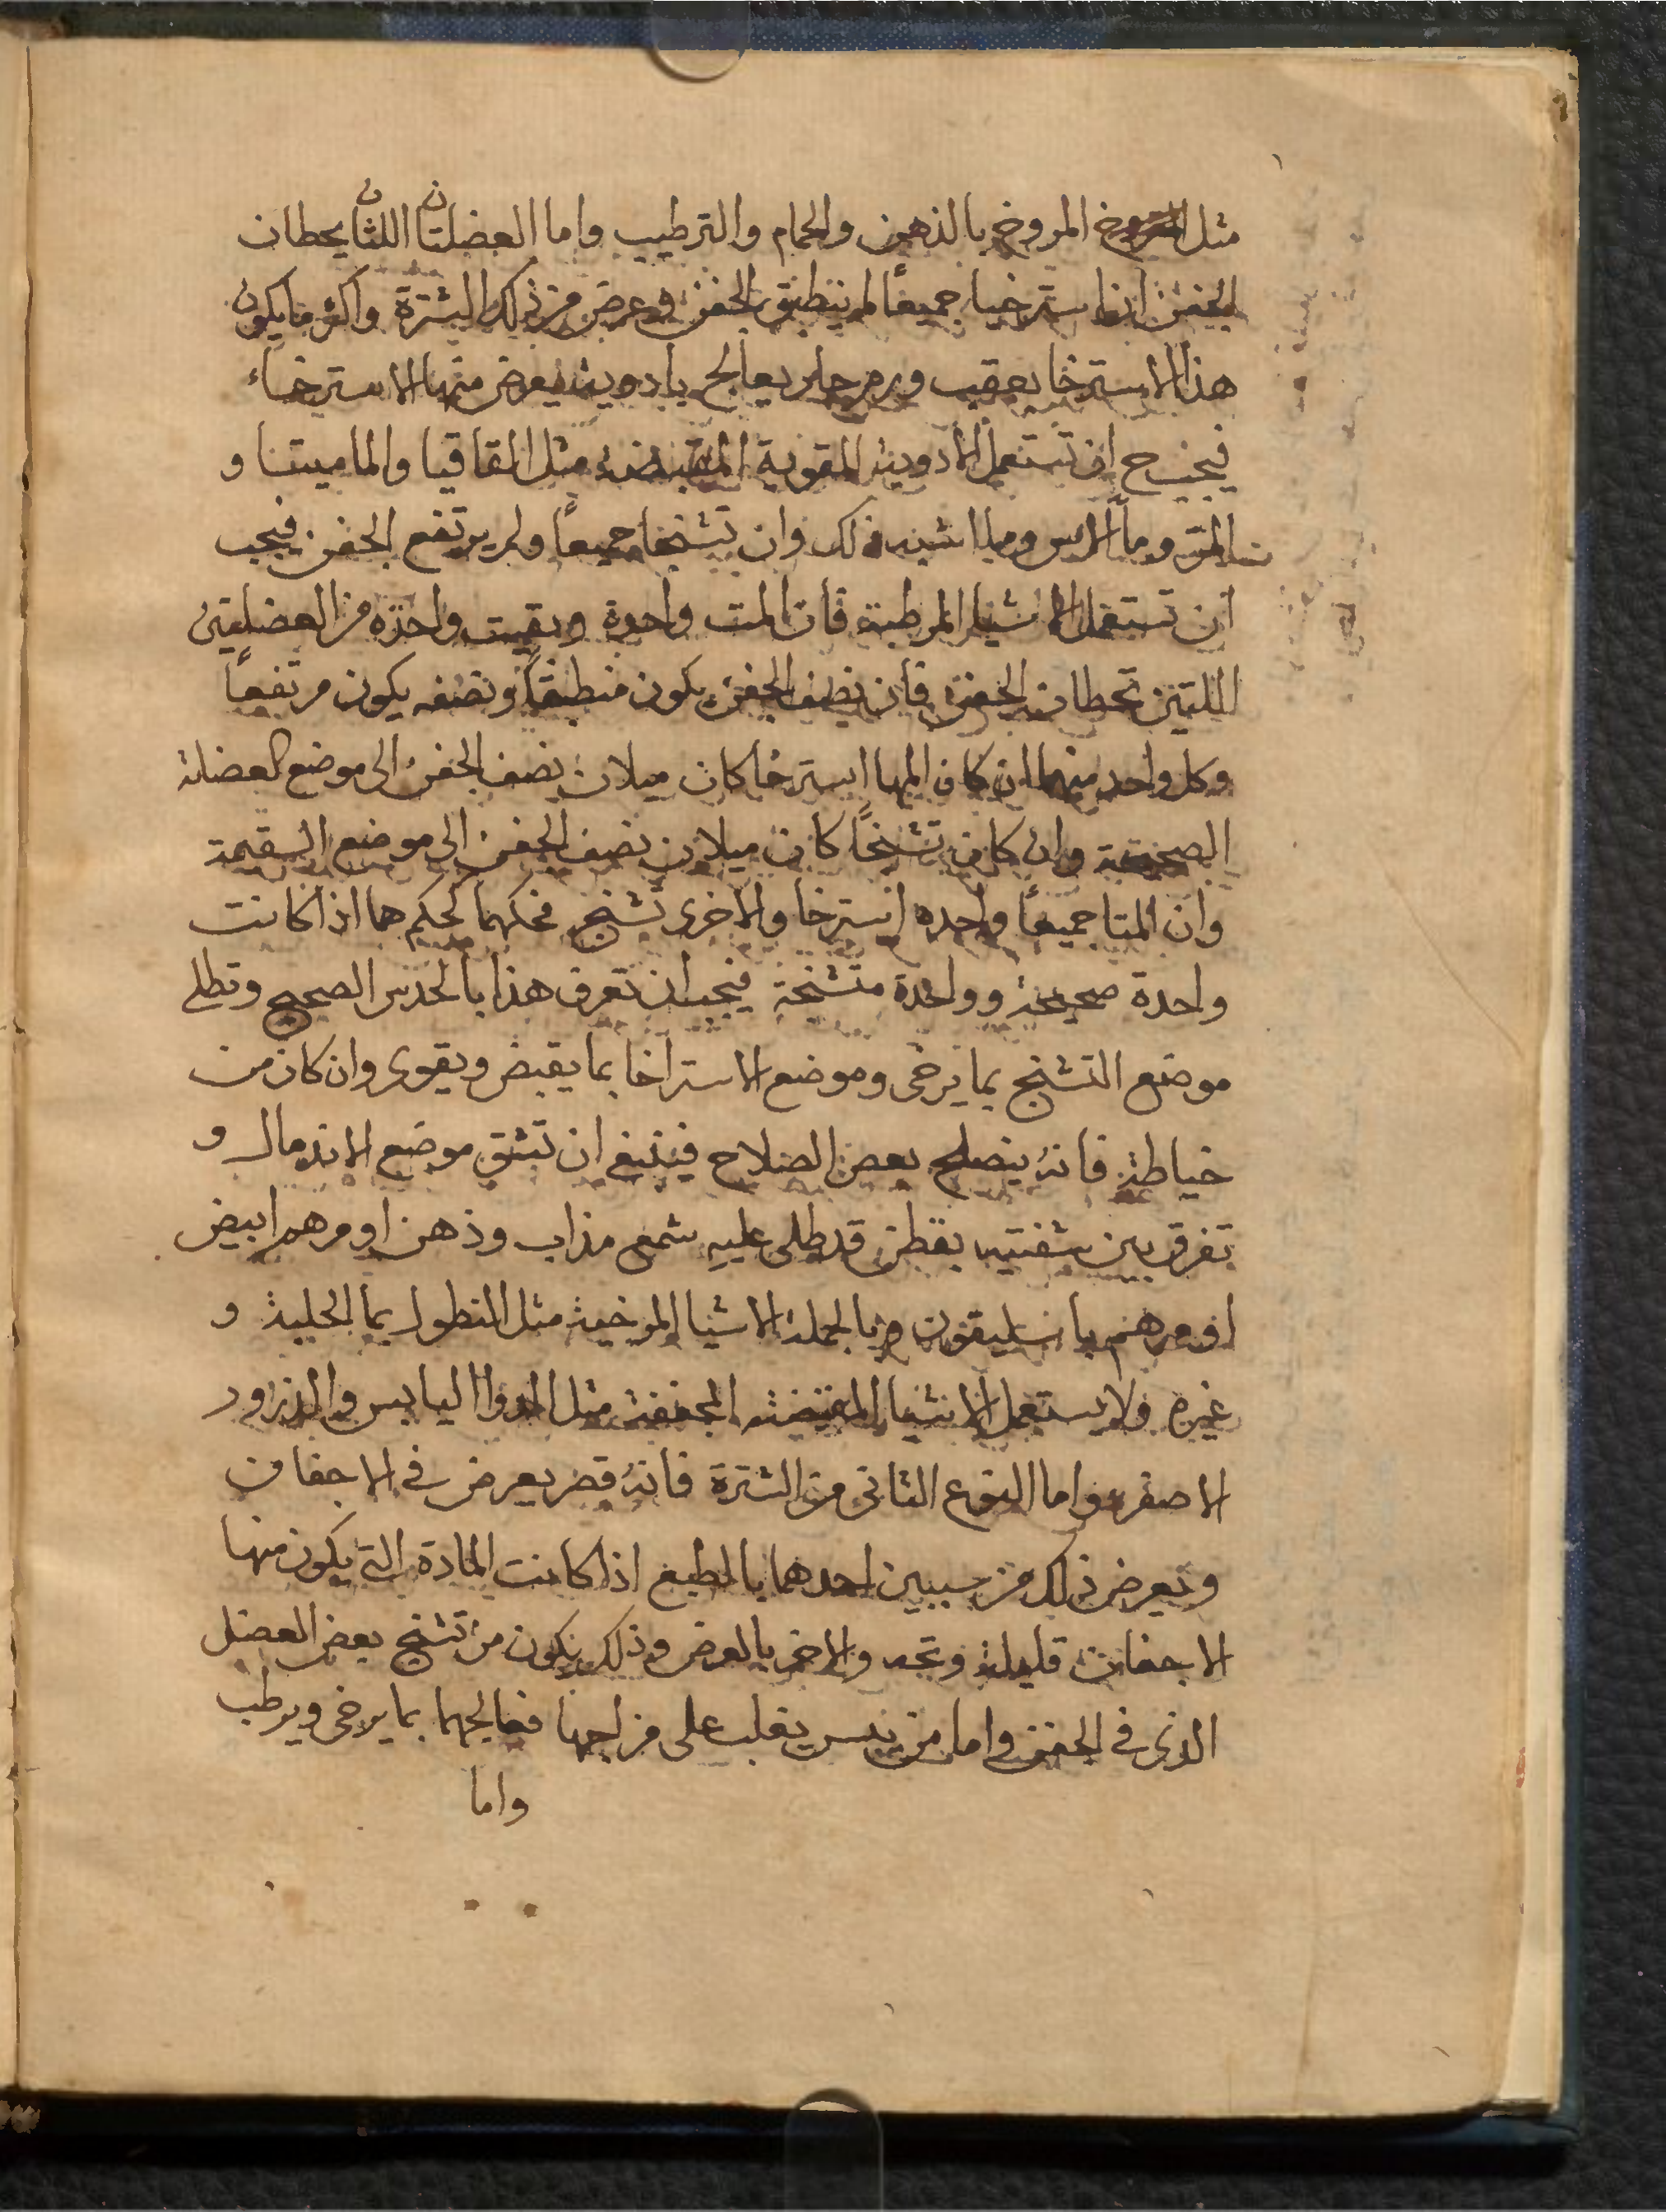 مثل المروخ بالذهن والحمام والترطيب واما العضلتان اللثان يحطان
الجفن اذا استرخيا جميعًا لم ينطبق الجفن فعرض من ذلك الشترة واكثر ما يكون
هذا الاسترخا بعقب ورم حار يعالج بادوية يعرض منها الاسترخاء
فيجب ح ان تستعمل الادوية المقوية المقبضة مثل القاقيا والماميثا و
المر وماء الاس وما اشبه ذلك وان تشنجا جميعًا ولم يرتفع الجفن فيجب
ان تستعمل الاشيا المرطبة فأن المت واحدة وبقيت واحدة من العضلتين
اللتين تحطان الجفن فأن نصف الجفن يكون منطبقًا ونصفه يكون مرتفعًا
وكل واحد منهما ان كان المها استرخا كان ميلان نصف الجفن الى موضع العضلة
الصحيحة وان كان تشنجًا كان ميلان نصف الجفن الى موضع السقيمة
وان المتا جميعًا واحدة استرخا والاخرى تشنج فحكمهما كحكم هما اذا كانت
واحدة صحيحة وواحدة متشنجة فيجب ان تعرف هذا بالحدس الصحيح وتطلى
موضع التشنج بما يرخى وموضع الاستراخا بما يقبض ويقوى وان كان من
خياطة فانه ينصلح بعض الصلاح فينبغ ان تشق موضع الاندمال و
تفرق بين شفتيه بقطن قد طلى عليه شمع مذاب وذهن او مرهم ابيض
او مرهم باسليقون وبالجملة الاشيا المرخية مثل النطول بما الحلبة و
غيره ولا يستعمل الاشيا المقبضة المجففة مثل الدواا اليابس والذرور
الاصفر واما النوع الثانى من الشترة فانه قصر يعرض فى الاجفان
ويعرض ذلك من سببين احدهما بالطبع اذا كانت المادة التى يكون منها
الاجفان قليلة والاخر بالعرض وذلك يكون من تشنج بعض العضل
الذى فى الجفن واما من يبس يغلب على مزاجها فعالجهما بما يرخى ويرطب
واما